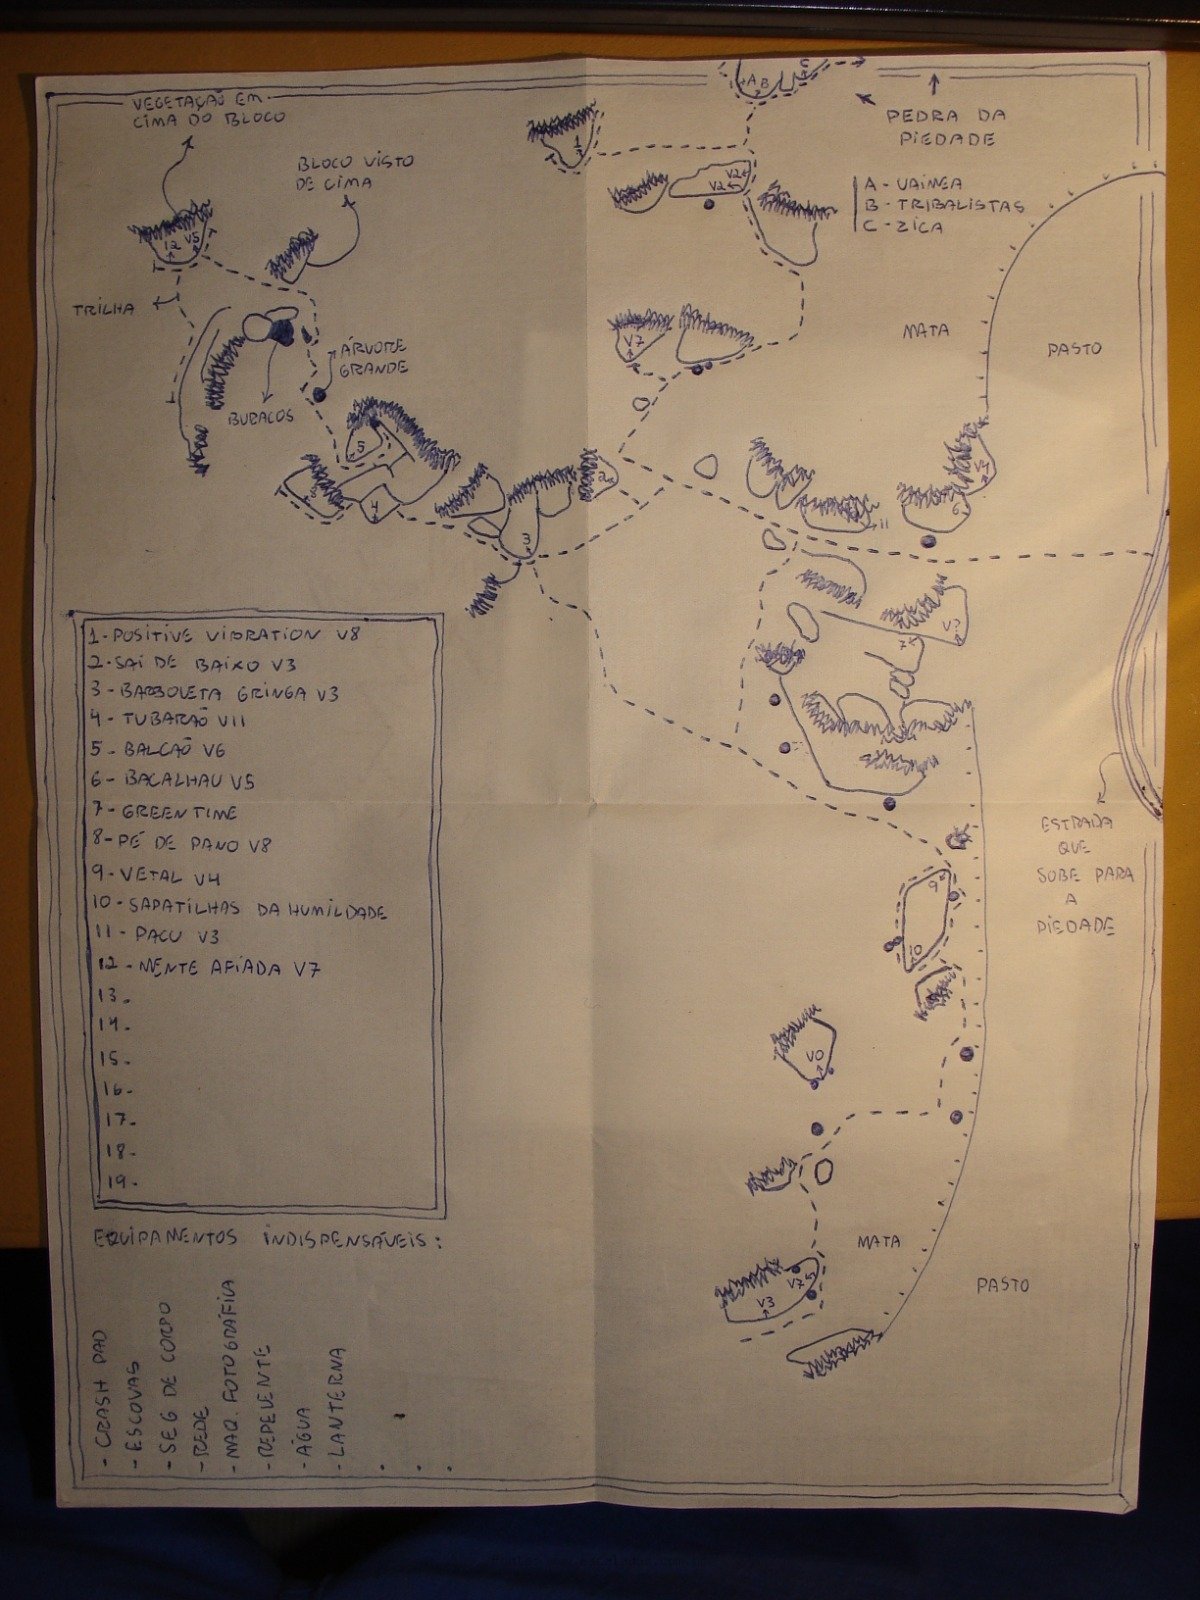 VEGETAÇÃO EM
CIMA DO BLOCO
BLOCO VISTO
DE CIMA
PEDRA DA
PIEDADE
A B C
A - VAINEA
B - TRIBALISTAS
C - ZICA
1
V2
V2
12 V5
TRILHA
ÁRVORE
GRANDE
BURACOS
V7
MATA
PASTO
5
4
3
2
11
6
7
1 - POSITIVE VIBRATION V8
2 - SAI DE BAIXO V3
3 - BARBOLETA GRINGA V3
4 - TUBARÃO V11
5 - BALCÃO V6
6 - BACALHAU V5
7 - GREEN TIME
8 - PÉ DE PANO V8
9 - VETAL V4
10 - SAPATILHAS DA HUMILDADE
11 - PACU V3
12 - MENTE AFIADA V7
13.
14.
15 -
16 -
17.
18 -
19 -
ESTRADA
QUE
SOBE PARA
A
PIEDADE
9
10
V0
MATA
PASTO
V7
V3
EQUIPAMENTOS INDISPENSÁVEIS:
- CRASH PAD
- ESCOVAS
- SEG DE CORPO
- REDE
- MAQ. FOTOGRÁFICA
- REPELENTE
- ÁGUA
- LANTERNA